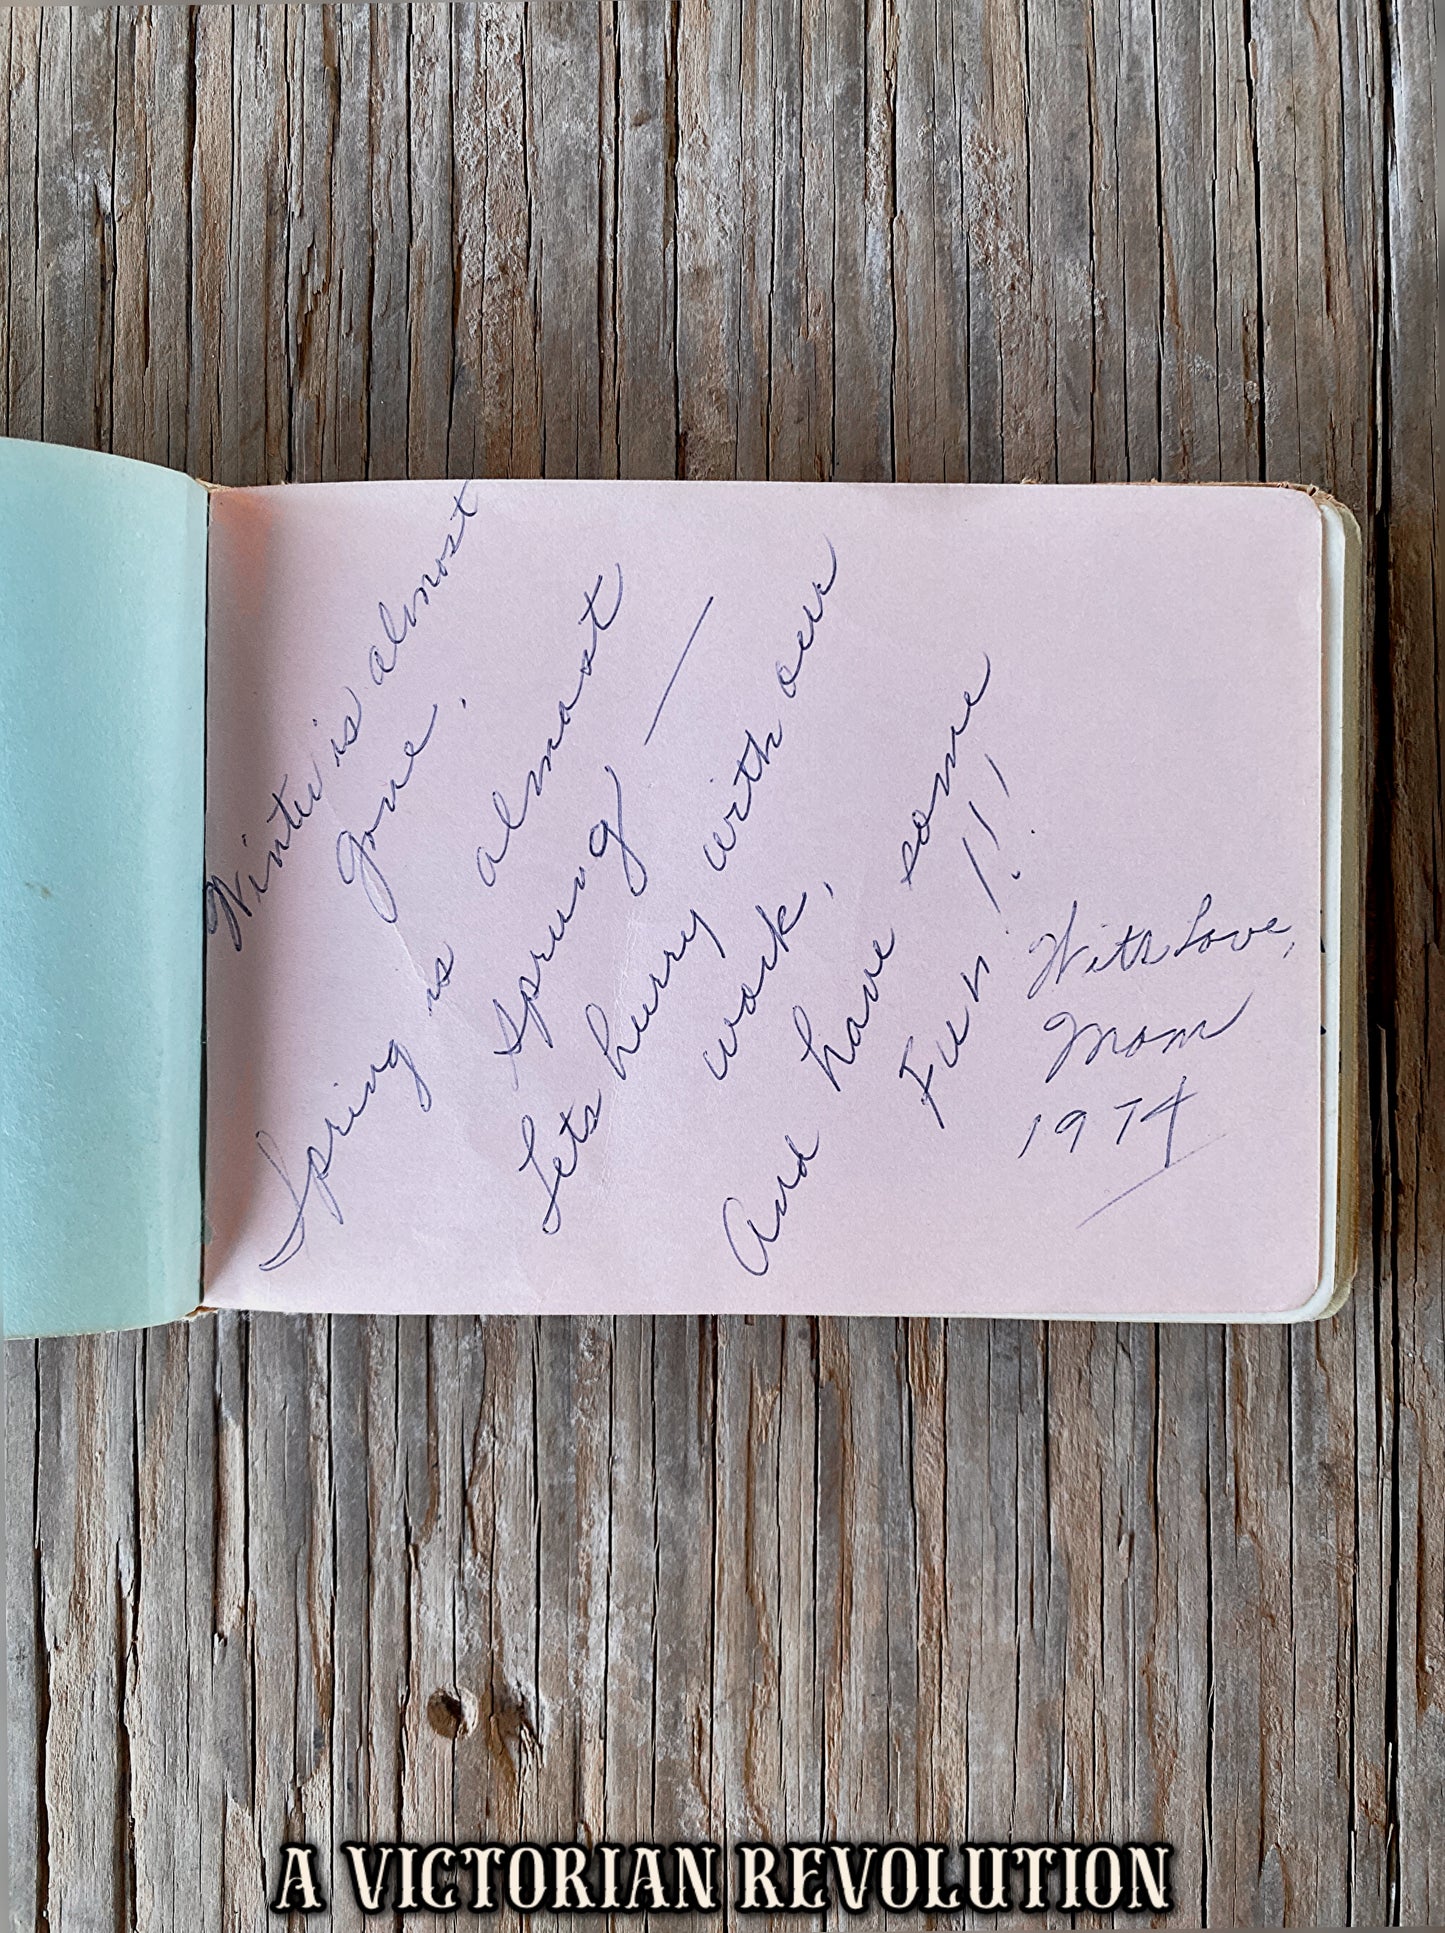 Winter is almost
gone,
Spring is almost
sprung —
Lets hurry with our
work,
And have some
Fun!!
With Love,
Mom
1974
A VICTORIAN REVOLUTION